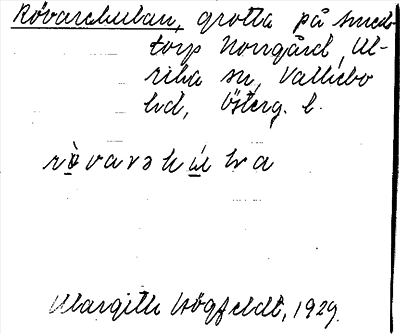 Rövarekulan, grotta på Smeds
torp Norrgård, Ul-
rika sn, Vallebo
hd, Österg. l.
Margith Högfeldt, 1929.